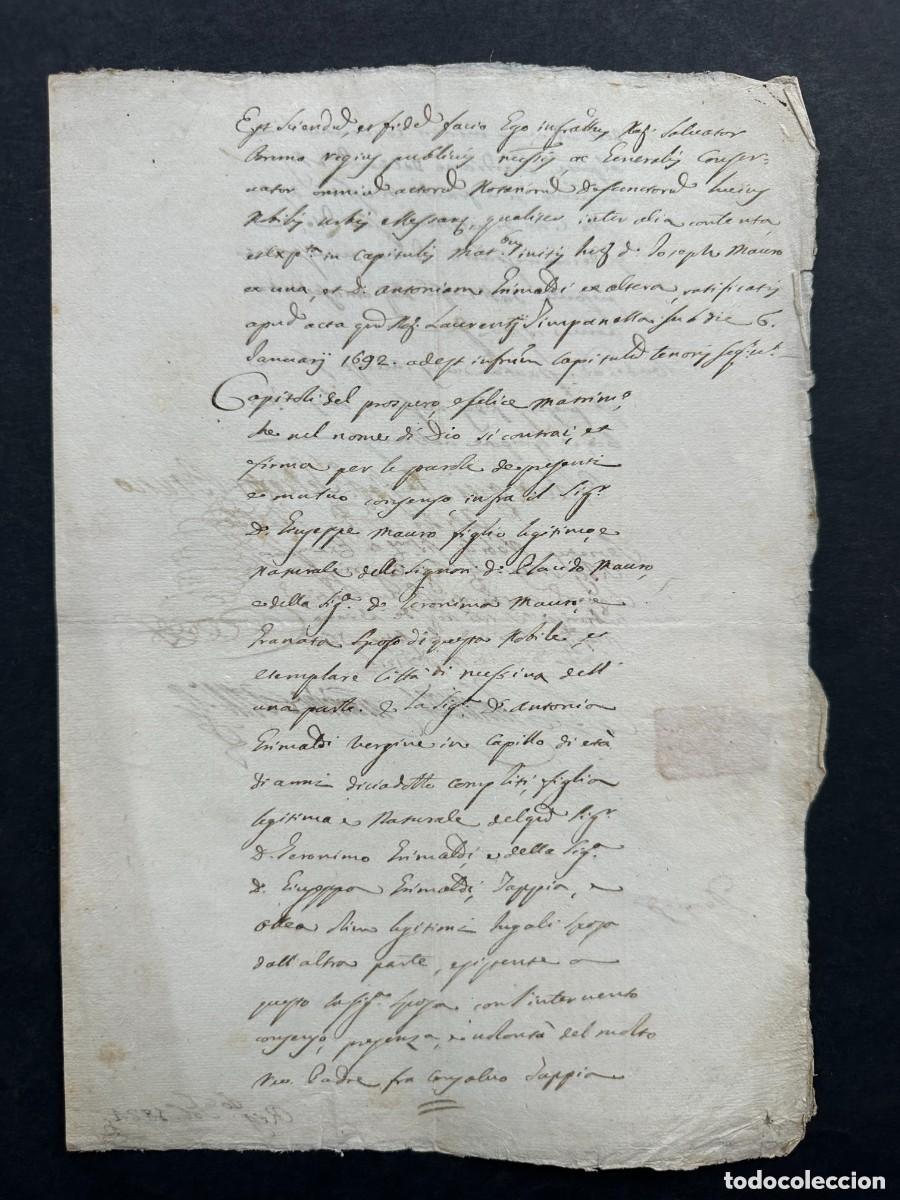 Est Sciendũ, et fidẽ facio Ego infrãttus Nõr Salvator
Bruno regius publicus messis ac Generalis Conser-
vator omniũ actorũ Notariorũ defunctorũ huius
Nobilis urbis Messanę, qualiter inter alia contenta
et exp.ta in Capitulis mat.rium initis inter d. Joseph Mauro
ex una, et d. Antoniam Grimaldi ex altera, ratificatis
apud acta qnd Nõr Laurentij Timpanella sub die 6.
Januarij 1692. adest infrũm Capitulũ tenoris seq.tis
Capitoli del prospero, e felice matrim.o
che nel nome di Dio si contrai, et
firma per le parole de presenti
e mutuo consenso, infra il Sig.r
D. Giuseppe Mauro figlio legitimo, e
naturale delli Signori d. Placido Mauro,
e della Sig.a d. Geronima Mauro, e
Granata sposo di questa Nobile, et
esemplare Città di Messina dell'
una parte. E la Sig.a d. Antonia
Grimaldi vergine in Capillo di età
di anni diciadotto compliti, figlia
legitima e Naturale del qnd Sig.r
D. Geronimo Grimaldi, e della Sig.a
d. Giuseppa Grimaldi, Tappia, e
olim legitimi Iugali sposa
dall'altra parte, esistente a
questo la Sig.a sposa con l'intervento
consenso, presenza, e volontà del molto
Rev. Padre fra Consalvo Tappia
todocoleccion
todocoleccion.net